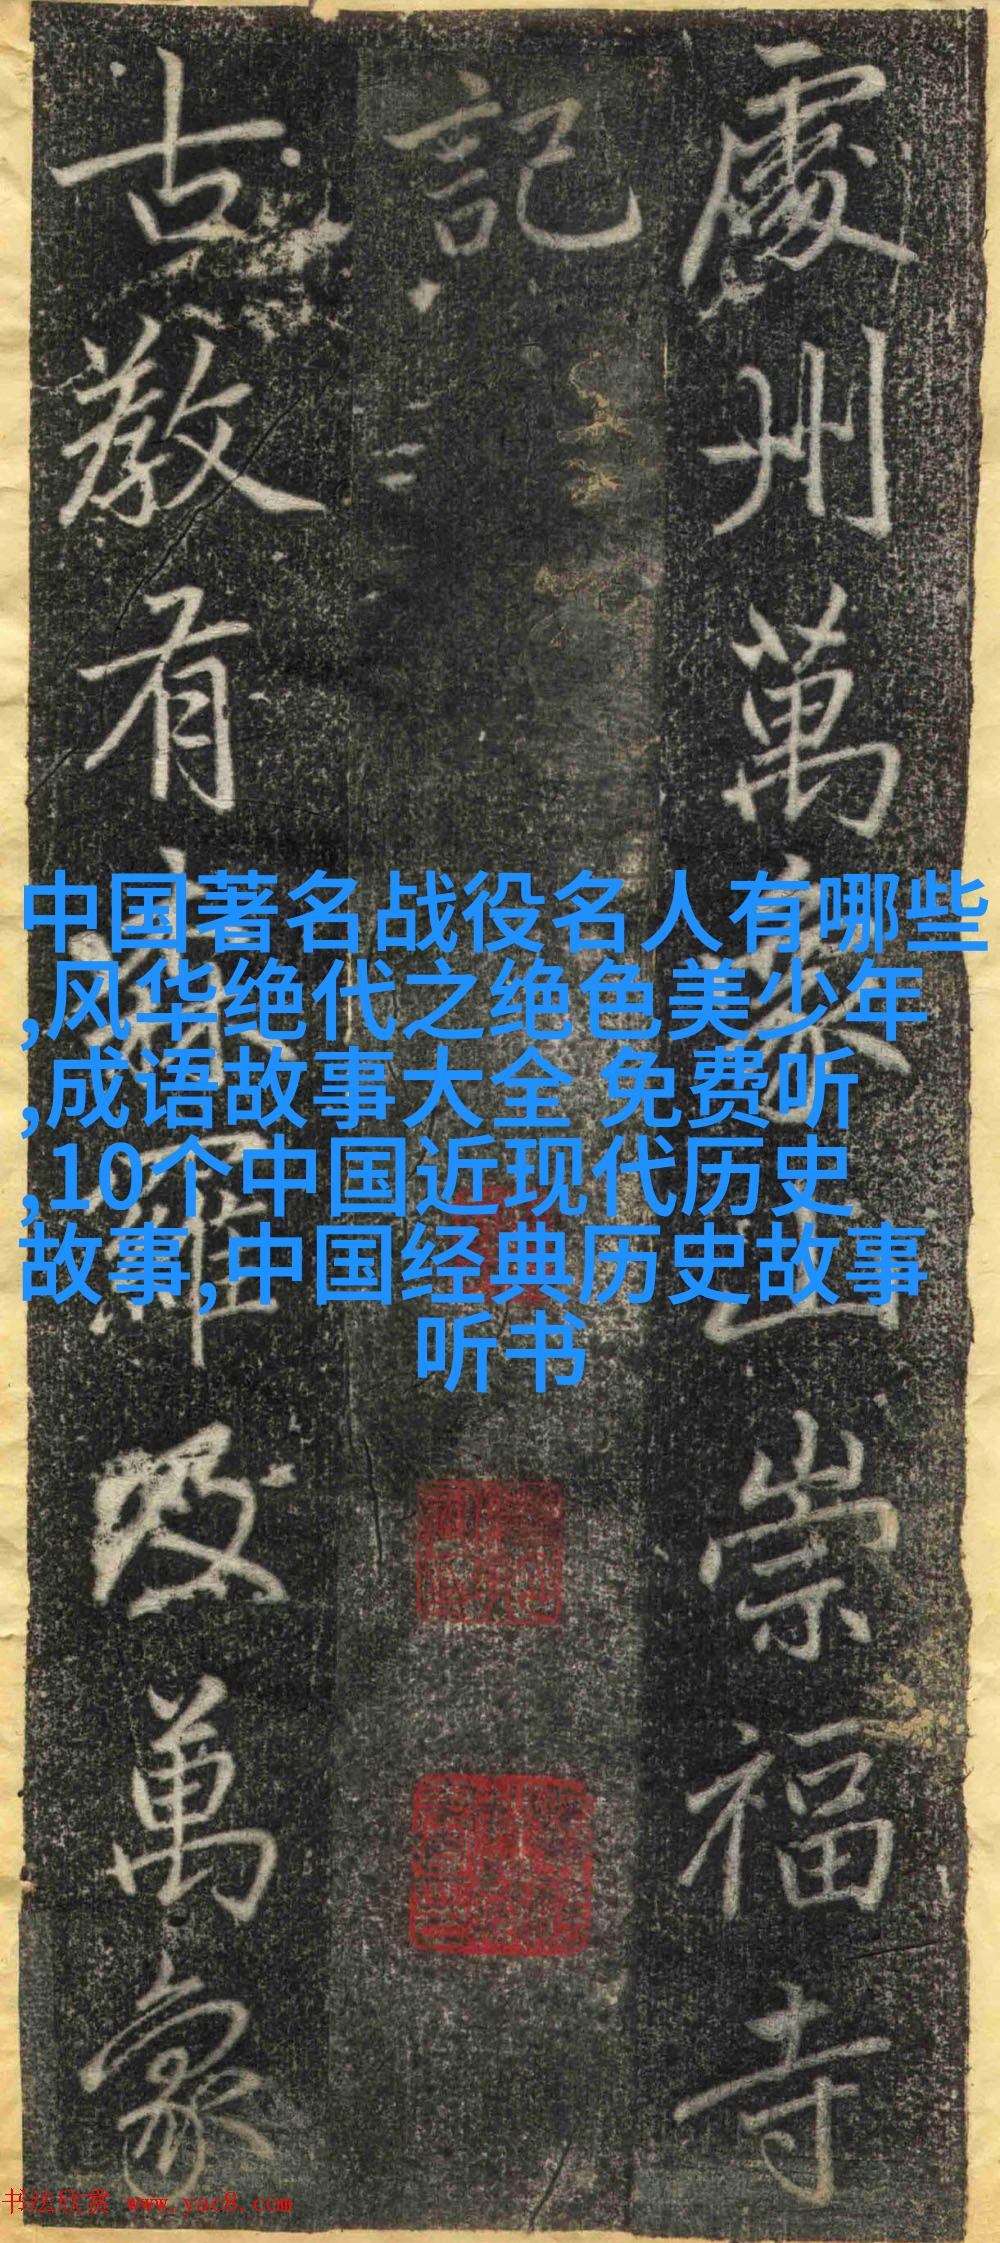 處州萬象山崇福寺
記
古教有羅及萬象
中国著名战役名人有哪些
,风华绝代之绝色美少年
,成语故事大全 免费听
,10个中国近现代历史
故事,中国经典历史故事
听书
书法欣赏 www.yac8.com